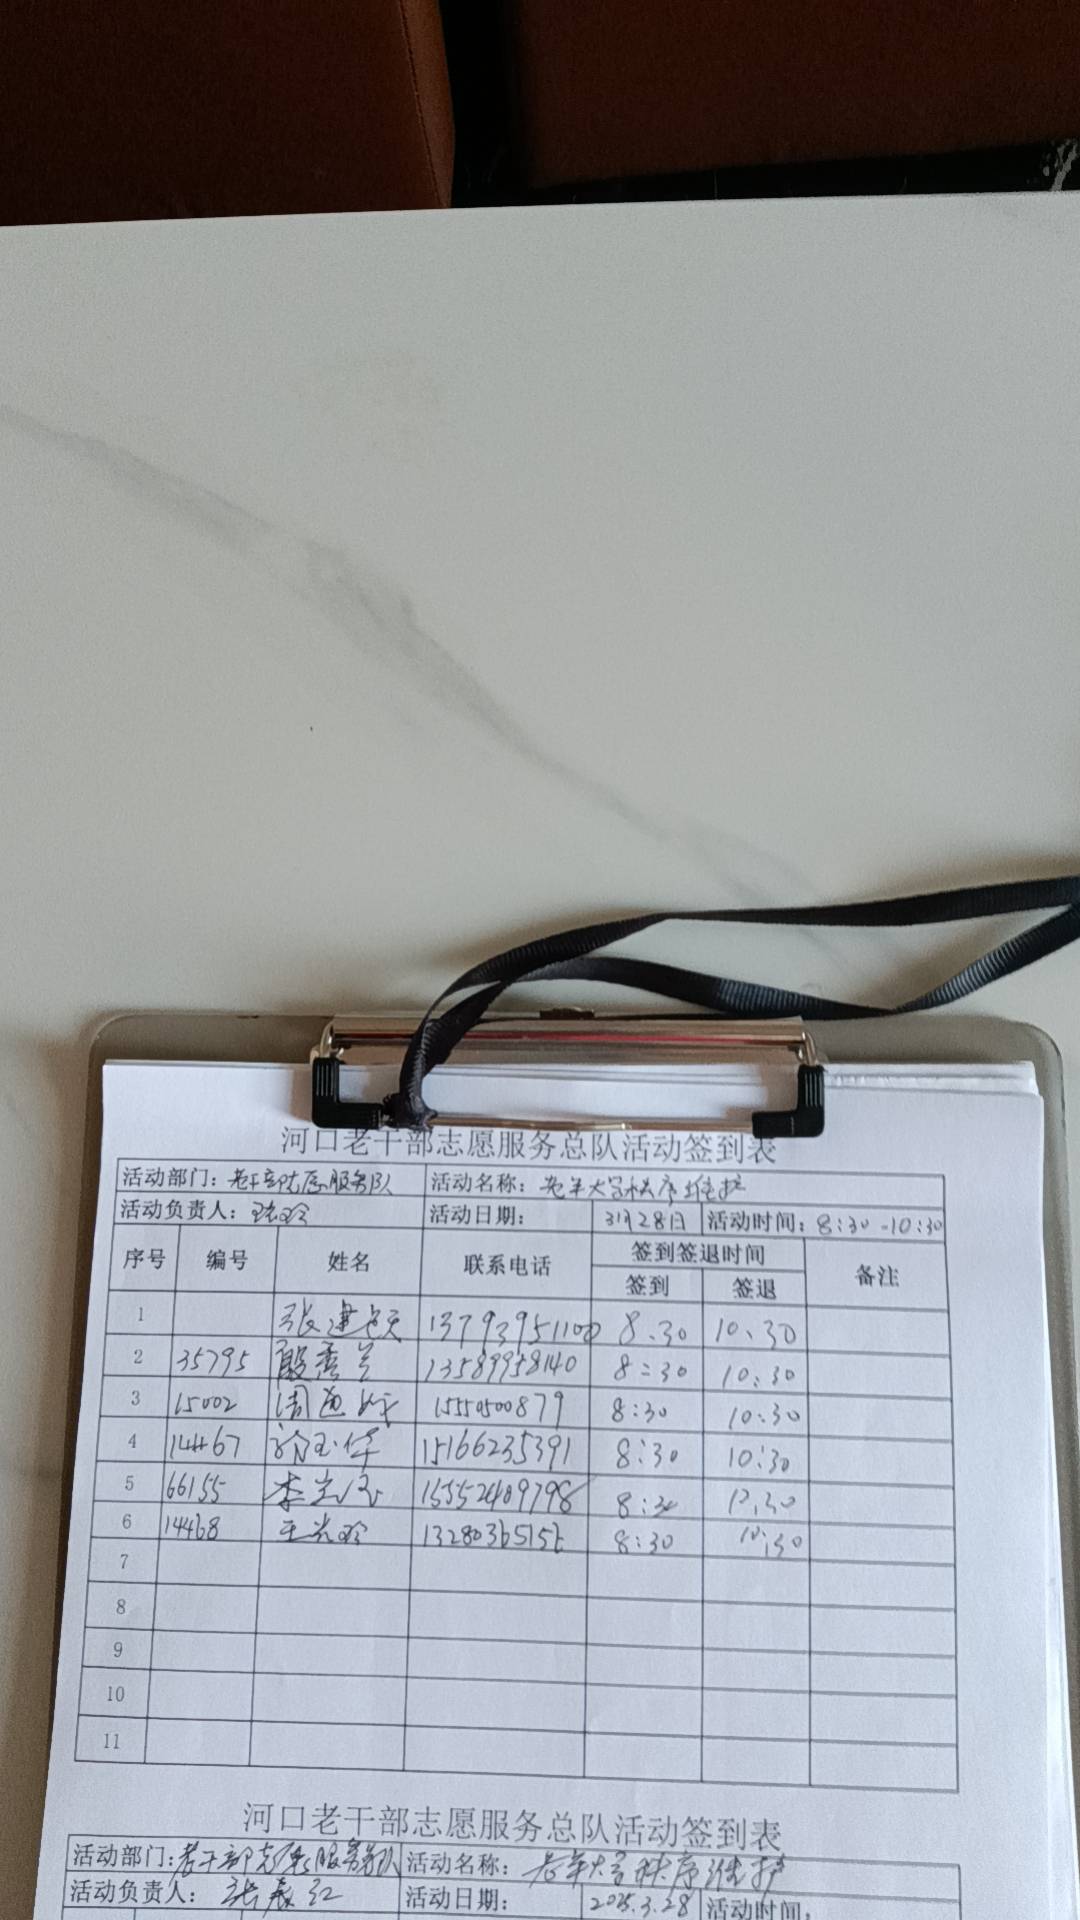 河口老干部志愿服务总队活动签到表
活动部门：老干部志愿服务队 活动名称：老年大学秩序维护
活动负责人： 活动日期： 3月28日 活动时间：8:30-10:30
序号 编号 姓名 联系电话 签到签退时间 备注
签到 签退
1 张建 13793951100 8.30 10.30
2 35795 殷秀兰 13589958140 8:30 10:30
3 15002 周 15550500879 8:30 10:30
4 14467 玉华 15166235391 8:30 10:30
5 66155 李 15552409798 8:30 10.30
6 14468 王光玲 1328036515 8:30 10:30
7
8
9
10
11
河口老干部志愿服务总队活动签到表
活动部门：老干部志愿服务队 活动名称：老年大学秩序维护
活动负责人：张红 活动日期： 2025.3.28 活动时间：